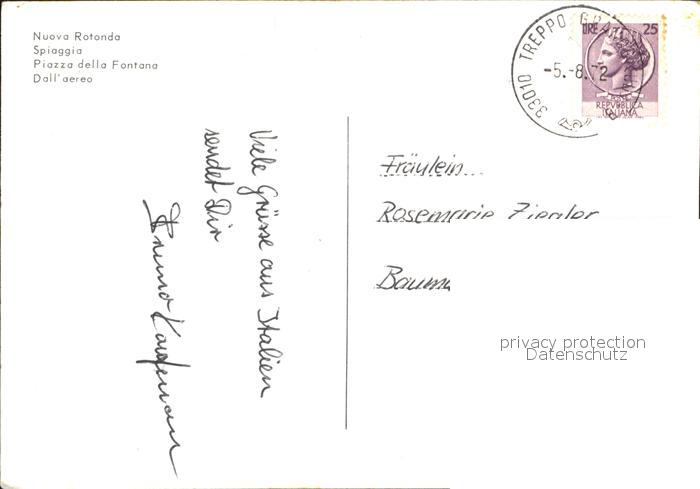 Nuova Rotonda
Spiaggia
Piazza della Fontana
Dall'aereo
33010 TREPPO GRA
-5.-8.72
LIRE 25
REPVBBLICA
ITALIANA
Viele Grüsse aus Italien
sendet Dir
Bruno Kaufmann
Fräulein
Rosemarie
Bauma
privacy protection
Datenschutz